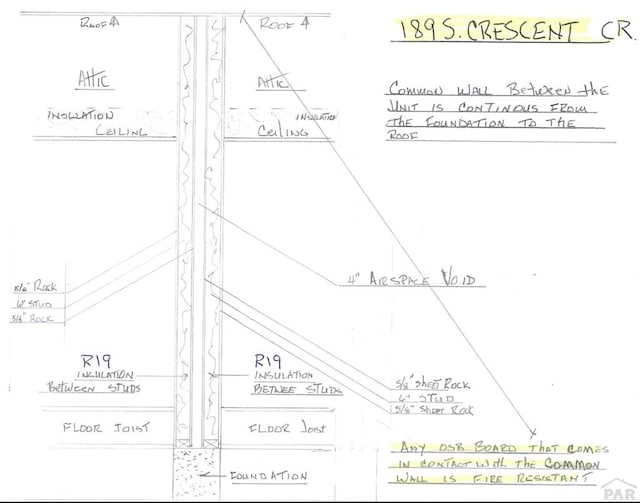 ROOF ROOF
189 S. CRESCENT CR.
ATTIC ATTIC
COMMON WALL BETWEEN THE
UNIT IS CONTINOUS FROM
THE FOUNDATION TO THE
ROOF
INSULATION INSULATION
CEILING CEILING
4" AIRSPACE VOID
5/8" ROCK
6" STUD
5/8" ROCK
R19 R19
INSULATION INSULATION
BETWEEN STUDS BETWEE STUDS
5/8" SHEET ROCK
6" STUD
5/8" SHEET ROCK
FLOOR JOIST FLOOR JOIST
ANY OSB BOARD THAT COMES
IN CONTACT WITH THE COMMON
WALL IS FIRE RESISTANT
FOUNDATION
PAR